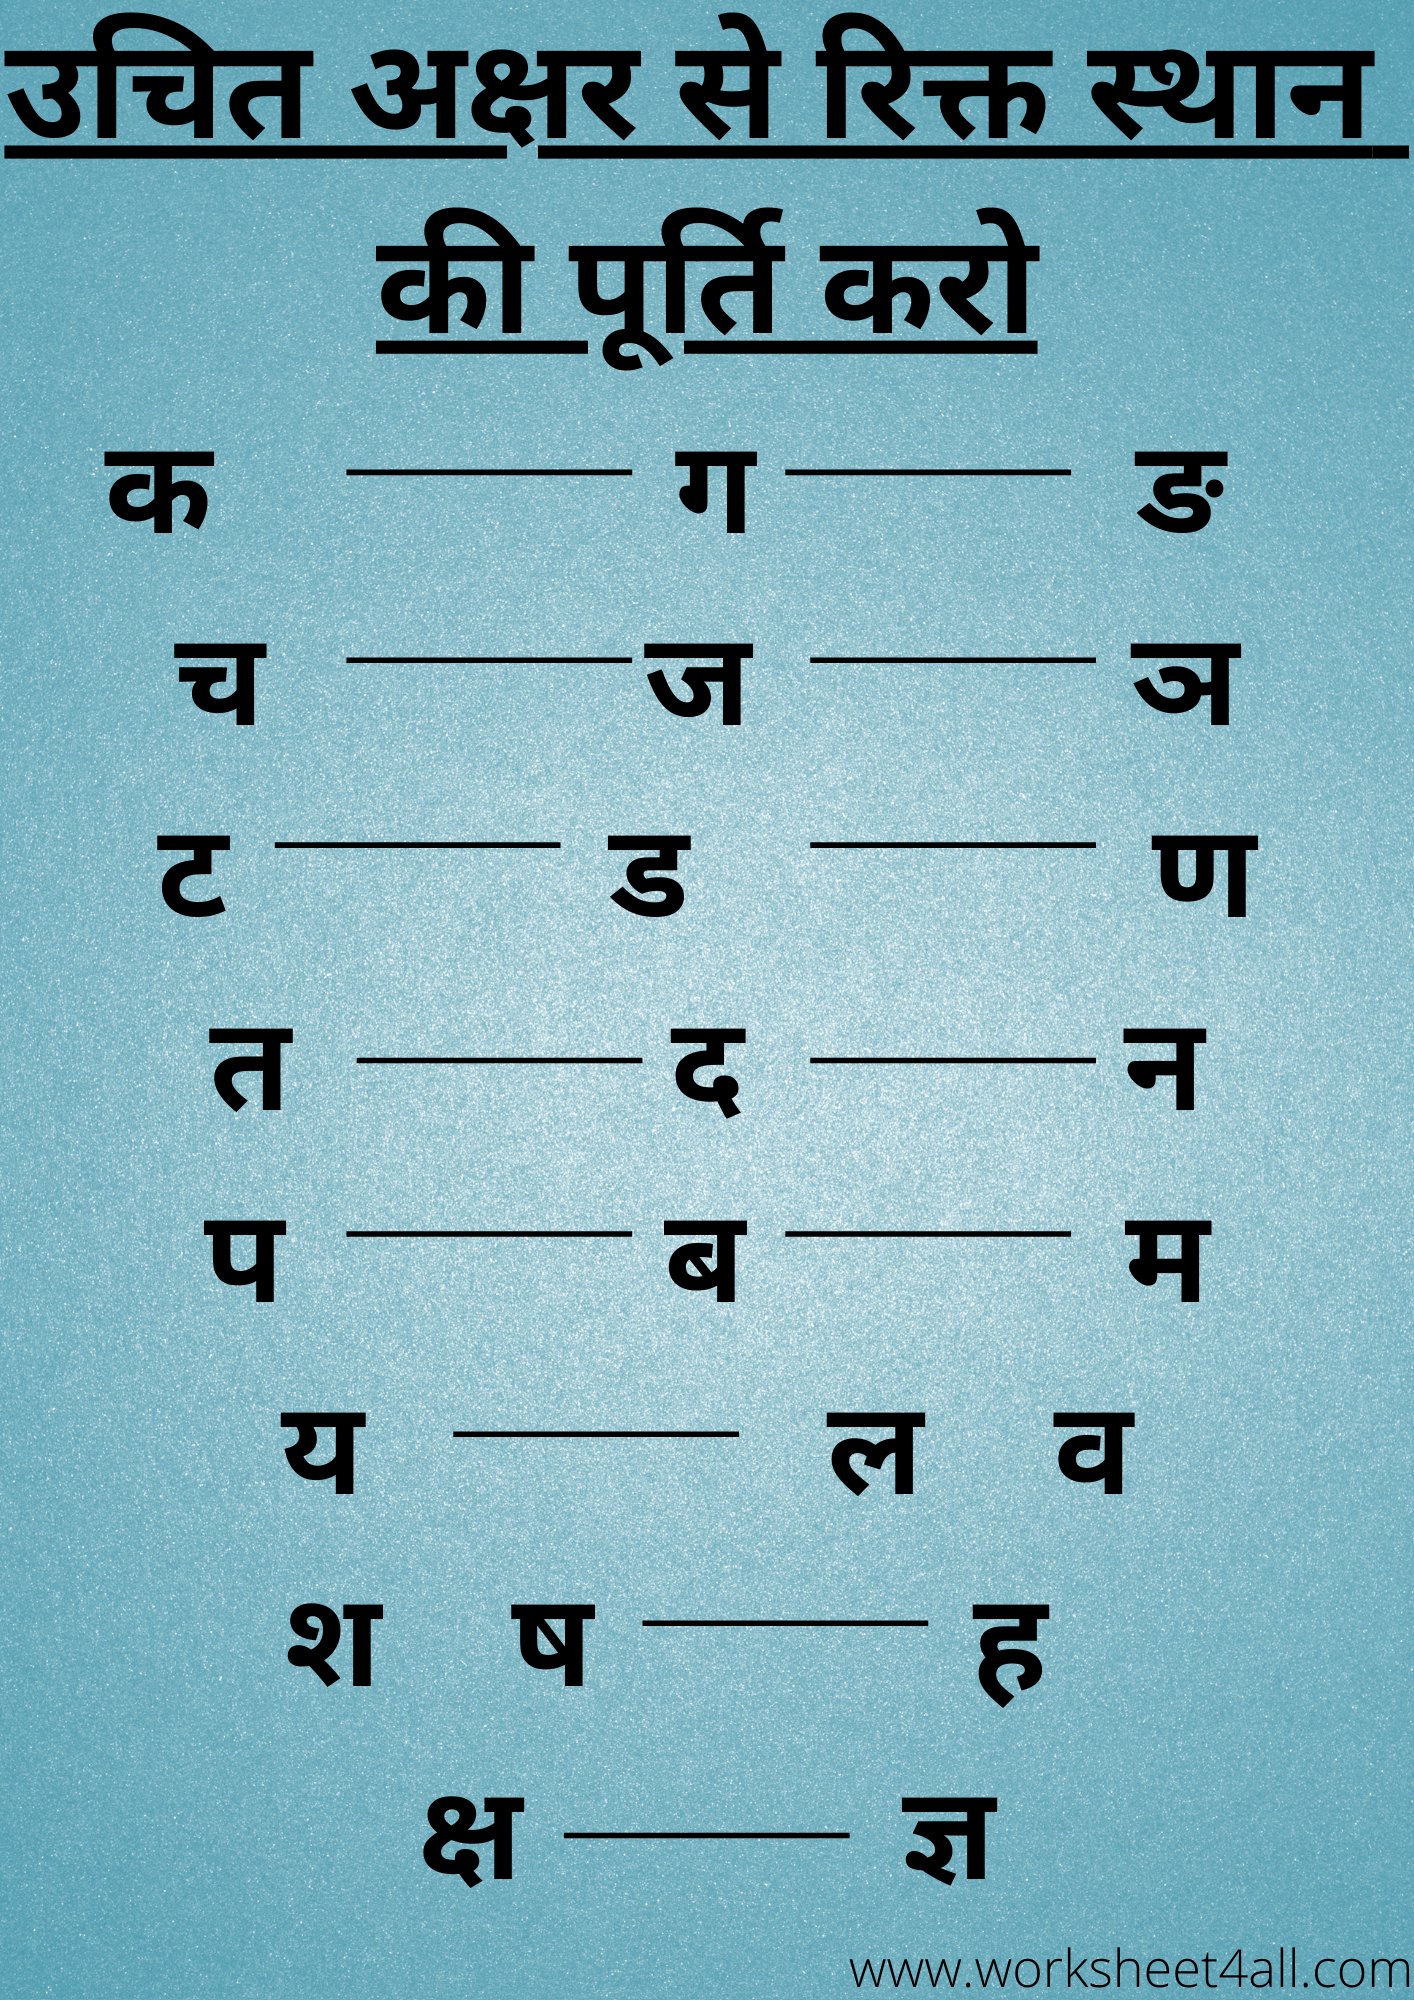 उचित अक्षर से रिक्त स्थान
की पूर्ति करो
क ______ ग ______ ङ
च ______ ज ______ ञ
ट ______ ड ______ ण
त ______ द ______ न
प ______ ब ______ म
य ______ ल व
श ष ______ ह
क्ष ______ ज्ञ
www.worksheet4all.com